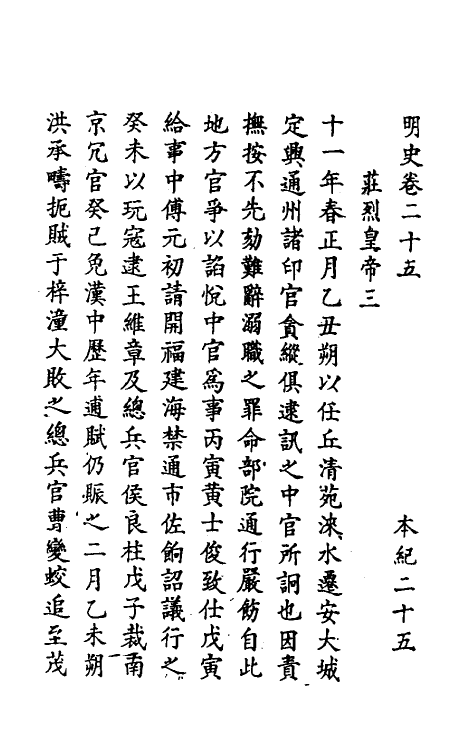 明史卷二十五　本紀二十五
莊烈皇帝三
十一年春正月乙丑朔以任丘清苑淶水遷安大城
定興通州諸印官貪縱俱逮訊之中官所詗也因責
撫按不先劾難辭溺職之罪命部院通行嚴飭自此
地方官爭以諂悅中官爲事丙寅黄士俊致仕戊寅
給事中傅元初請開福建海禁通市佐餉詔議行之
癸未以玩寇逮王維章及總兵官侯良柱戊子裁南
京冗官癸巳免漢中歷年逋賦仍賑之二月乙未朔
洪承疇扼賊于梓潼大敗之總兵官曹變蛟追至茂